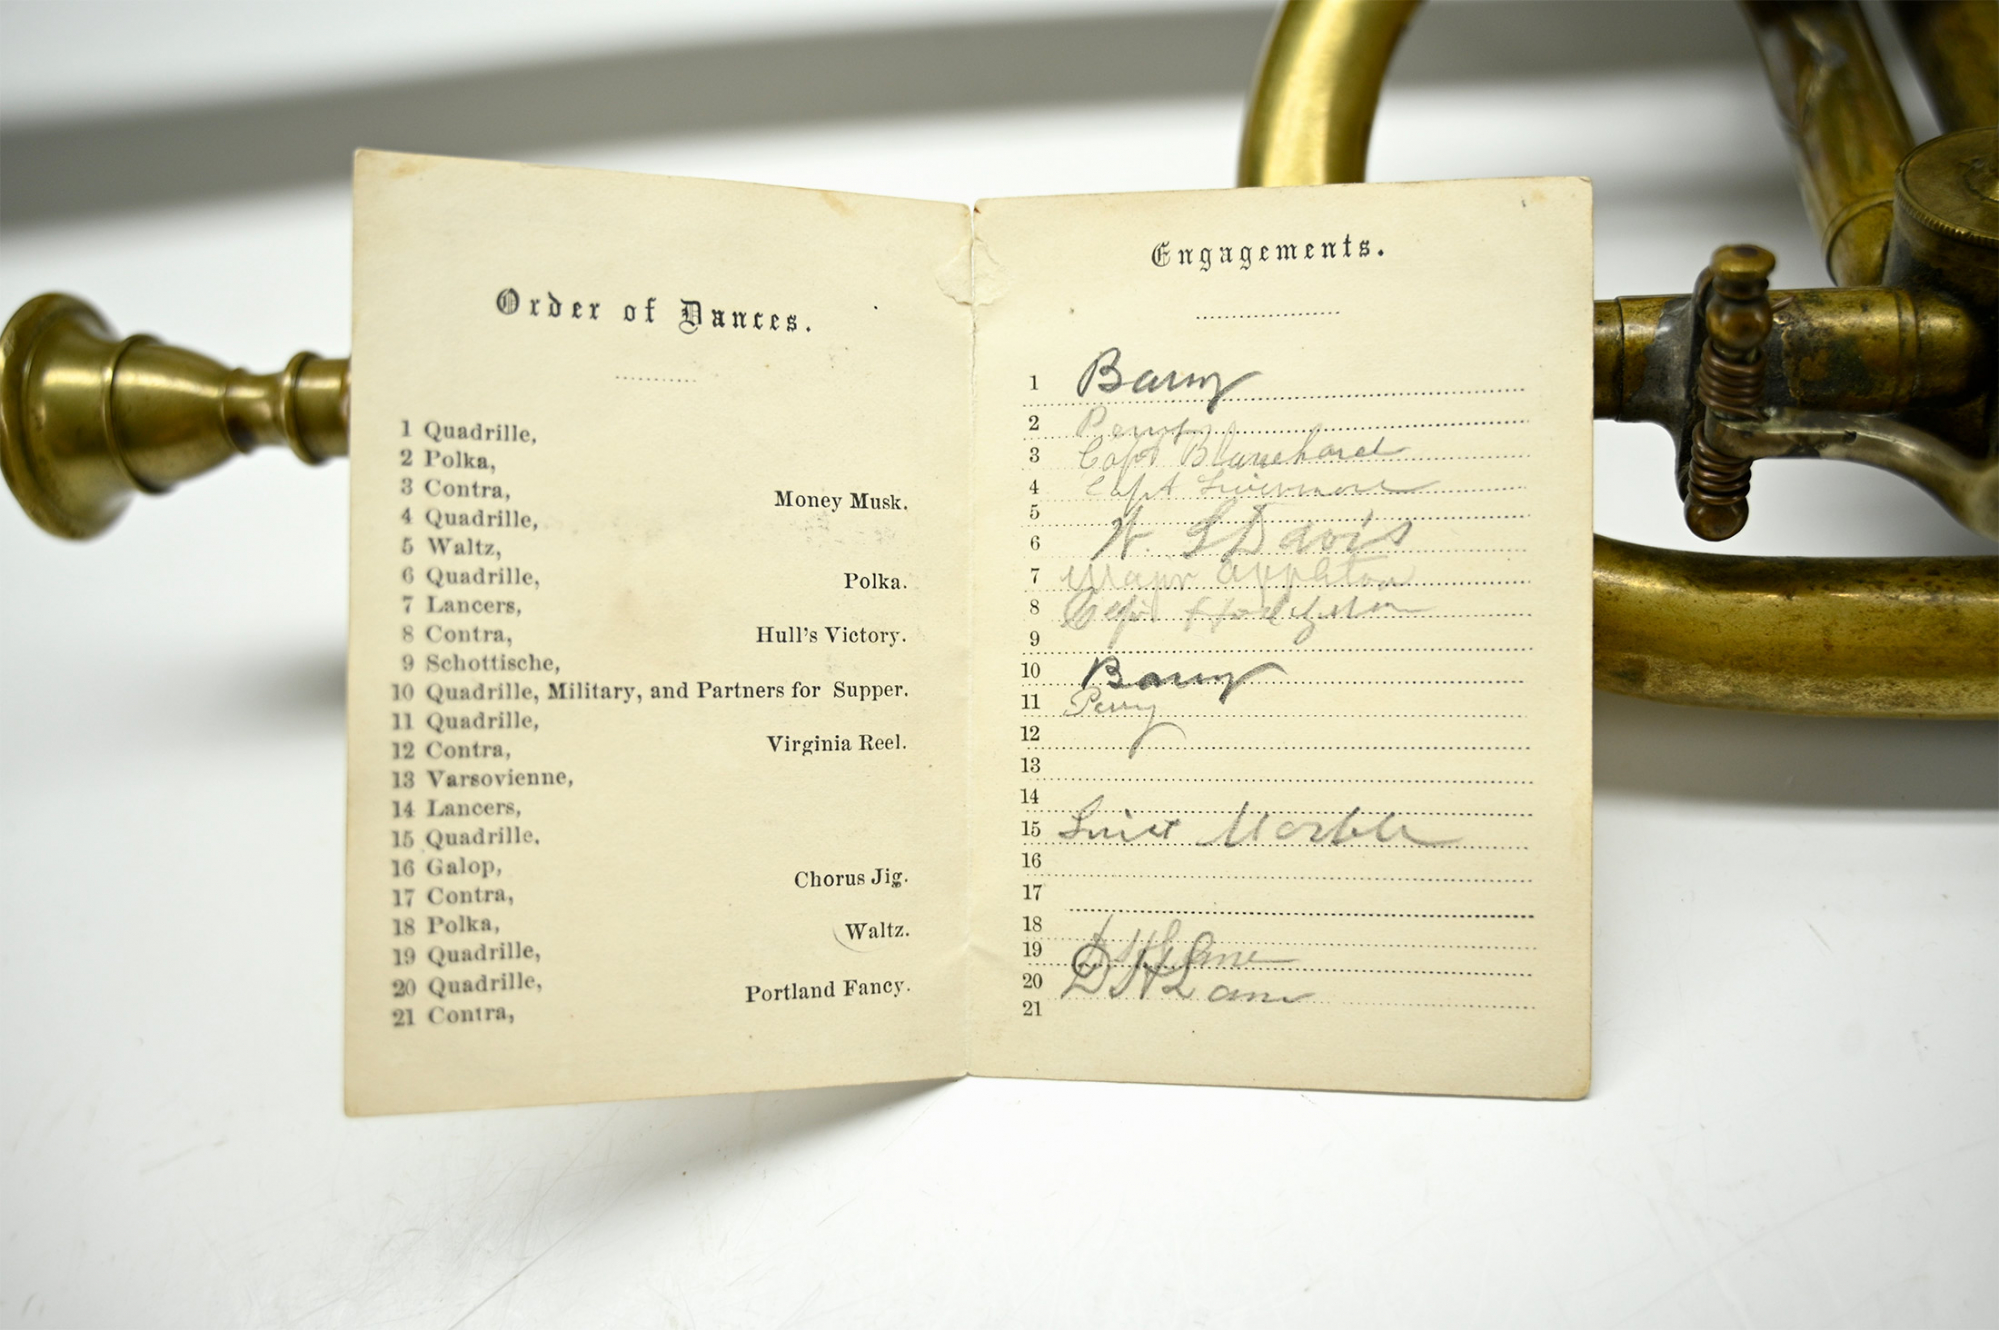 Order of Dances.
1 Quadrille,
2 Polka,
3 Contra, Money Musk.
4 Quadrille,
5 Waltz,
6 Quadrille, Polka.
7 Lancers,
8 Contra, Hull's Victory.
9 Schottische,
10 Quadrille, Military, and Partners for Supper.
11 Quadrille,
12 Contra, Virginia Reel.
13 Varsovienne,
14 Lancers,
15 Quadrille.
16 Galop,
17 Contra, Chorus Jig.
18 Polka,
19 Quadrille, Waltz.
20 Quadrille,
21 Contra, Portland Fancy.
Engagements.
1 Barry
2
3 Capt Blanchard
4 Capt Livermore
5
6 W. S Davis
7 Major Appleton
8 Capt
9
10 Barry
11 Perry
12
13
14
15 Marble
16
17
18
19 D H Lane
20 D H Lane
21